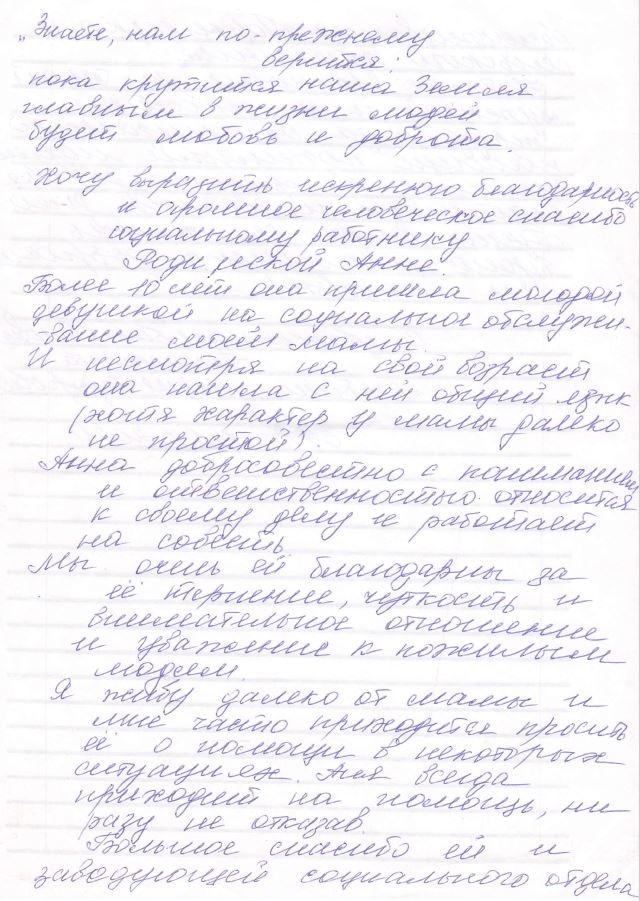 „Знаете, нам по-прежнему
верится:
пока крутится наша Земля
главным в жизни людей
будет любовь и доброта.
Хочу выразить искреннюю благодарность
и огромное человеческое спасибо
социальному работнику
Анне.
Более 10 лет она пришла молодой
девушкой на социальное обслужи-
вание моей мамы.
И несмотря на свой возраст
она нашла с ней общий язык
(хотя характер у мамы далеко
не простой).
Анна добросовестно с пониманием
и ответственностью относится
к своему делу и работает
на совесть.
Мы очень ей благодарны за
её терпение, чуткость и
внимательное отношение
и уважение к пожилым
людям.
Я живу далеко от мамы и
мне часто приходится просить
её о помощи в некоторых
ситуациях. Аня всегда
приходит на помощь, ни
разу не отказав.
Большое спасибо ей и
заводующей социального отдела